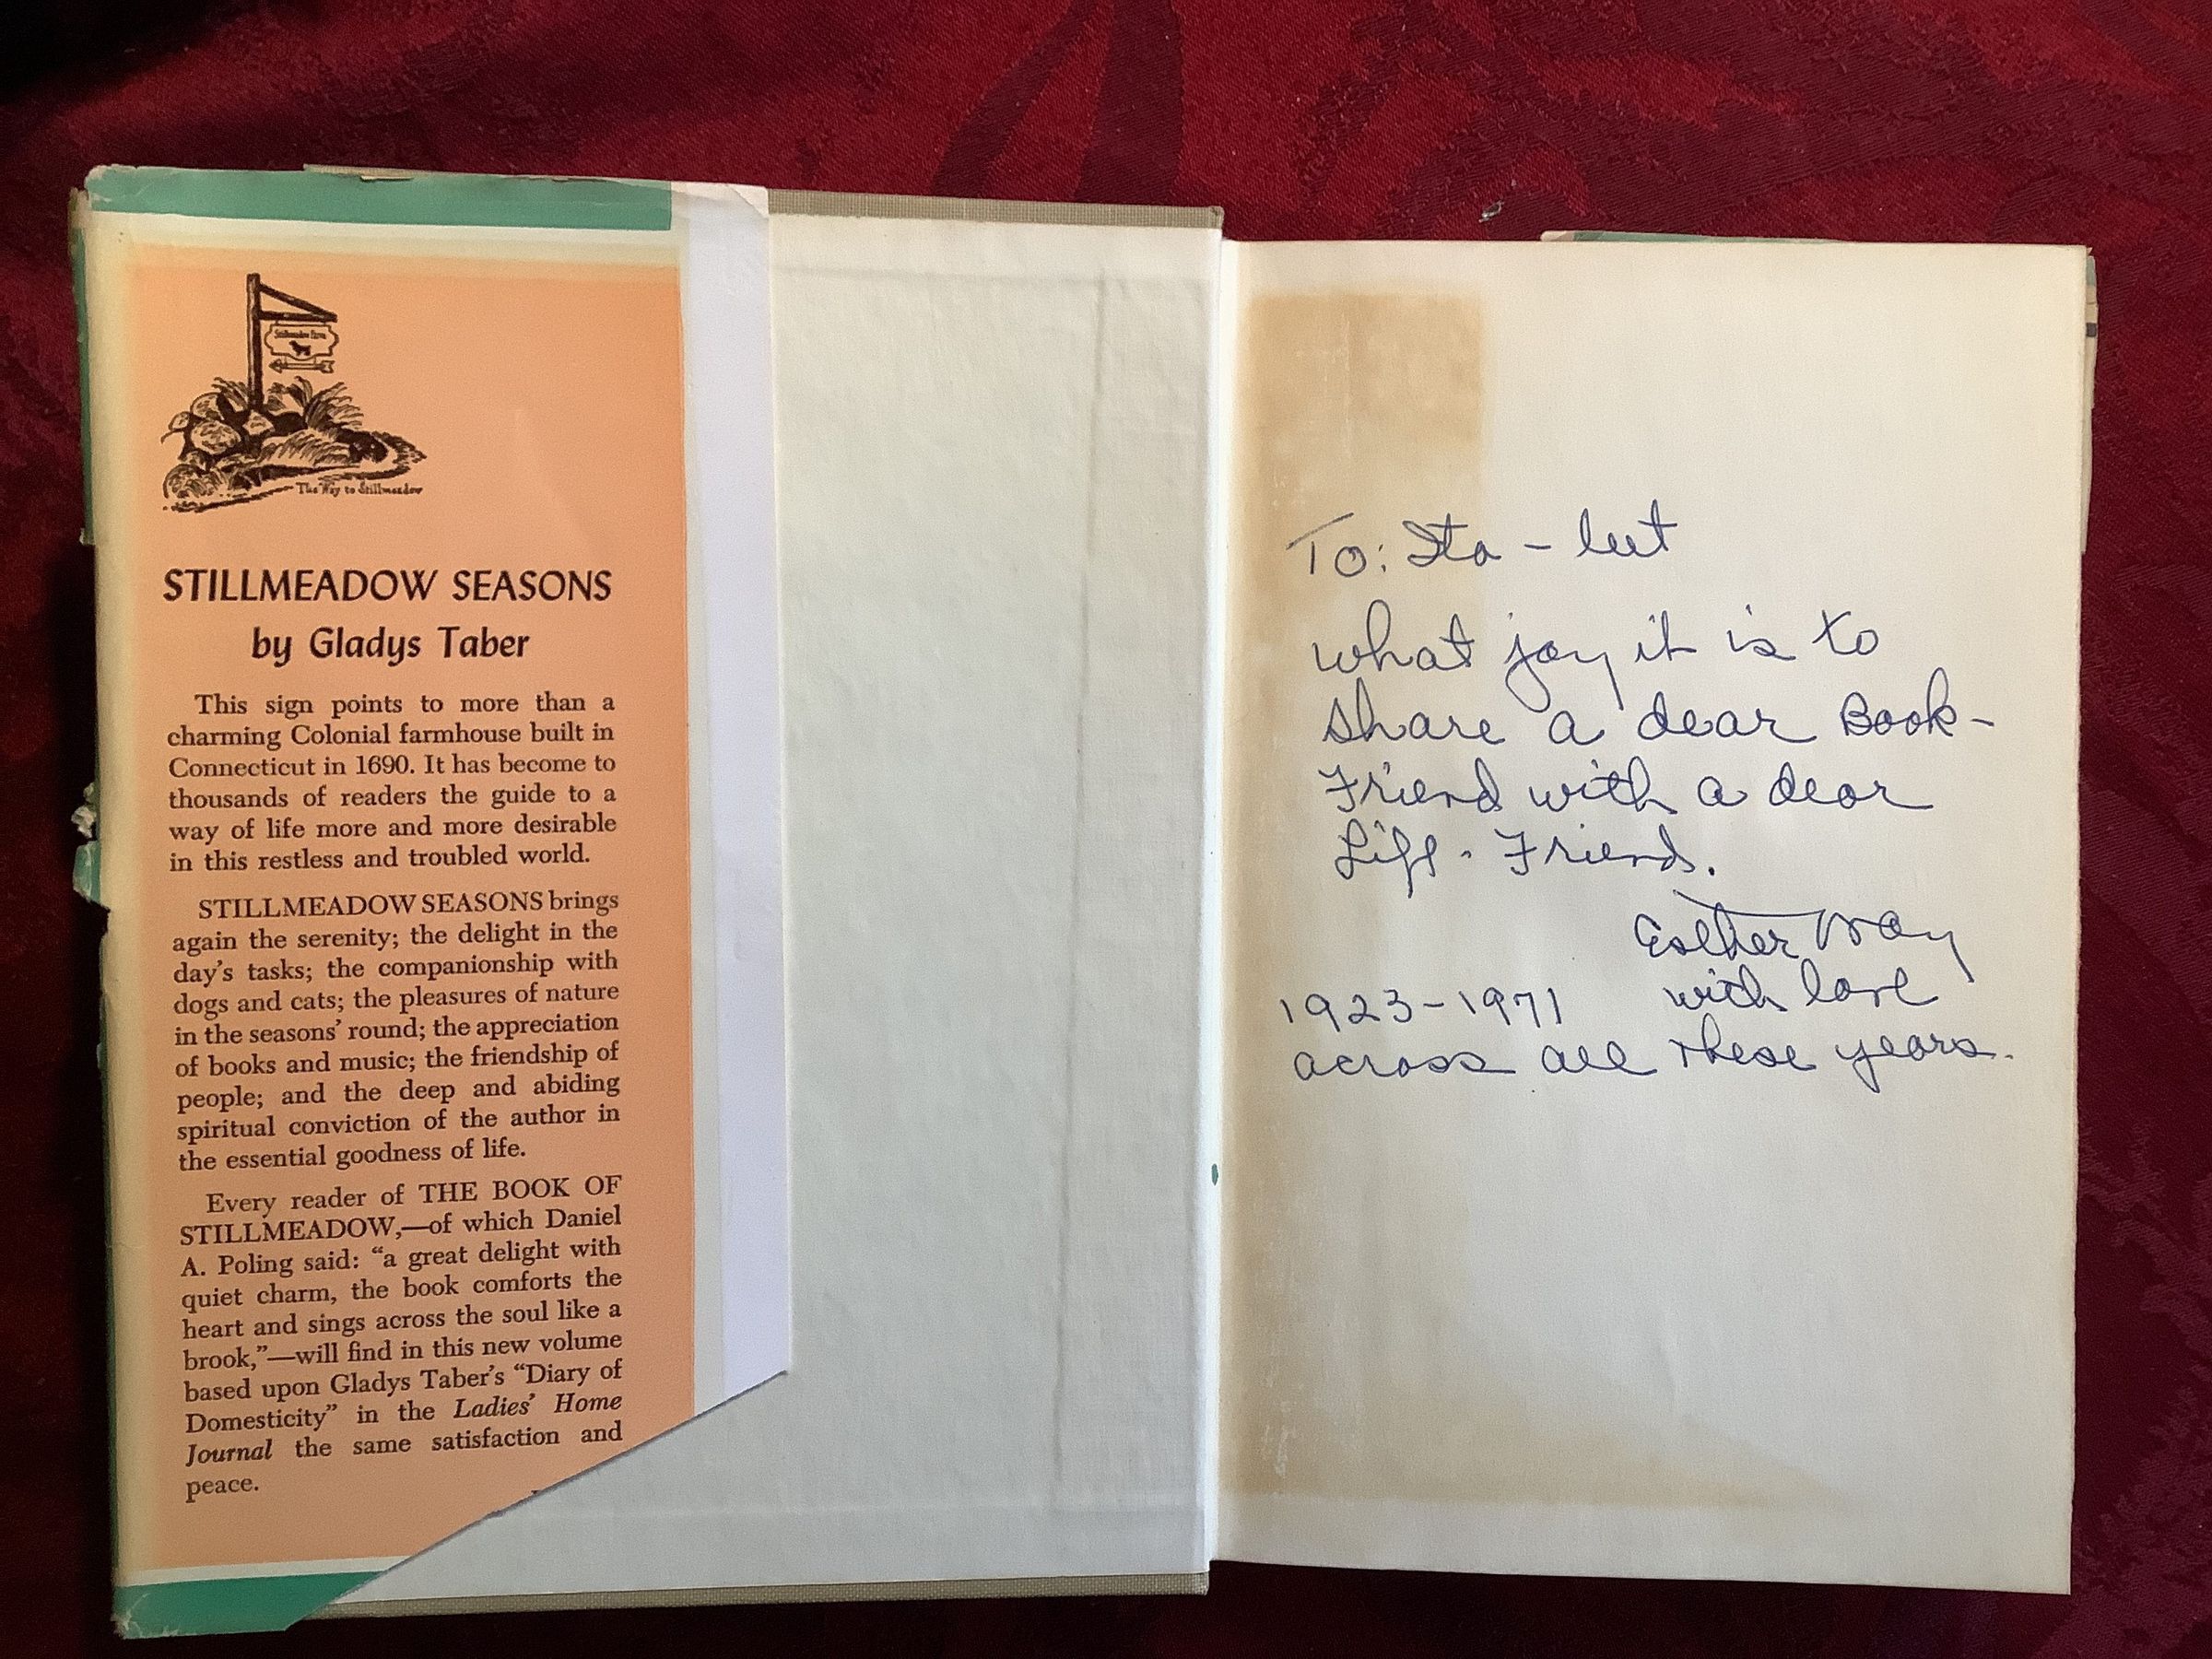 Stillmeadow Farm
The Way to Stillmeadow
STILLMEADOW SEASONS
by Gladys Taber
This sign points to more than a
charming Colonial farmhouse built in
Connecticut in 1690. It has become to
thousands of readers the guide to a
way of life more and more desirable
in this restless and troubled world.
STILLMEADOW SEASONS brings
again the serenity; the delight in the
day's tasks; the companionship with
dogs and cats; the pleasures of nature
in the seasons' round; the appreciation
of books and music; the friendship of
people; and the deep and abiding
spiritual conviction of the author in
the essential goodness of life.
Every reader of THE BOOK OF
STILLMEADOW,—of which Daniel
A. Poling said: “a great delight with
quiet charm, the book comforts the
heart and sings across the soul like a
brook,”—will find in this new volume
based upon Gladys Taber's “Diary of
Domesticity” in the Ladies' Home
Journal the same satisfaction and
peace.
To:
what joy it is to
share a dear Book-
Friend with a dear
Life-Friend.
Esther May
with love
1923-1971
across all these years.